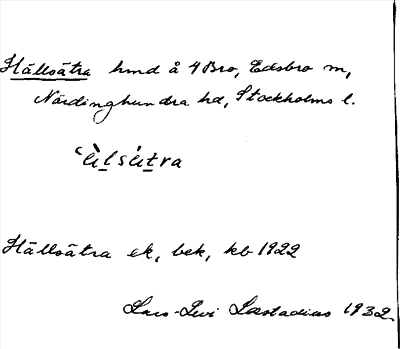 Hällsätra hmd å 4 Bro, Edsbro sn,
Närdinghundra hd, Stockholms l.
Hällsätra ek, bek, kb 1922
Lars-Levi Læstadius 1932